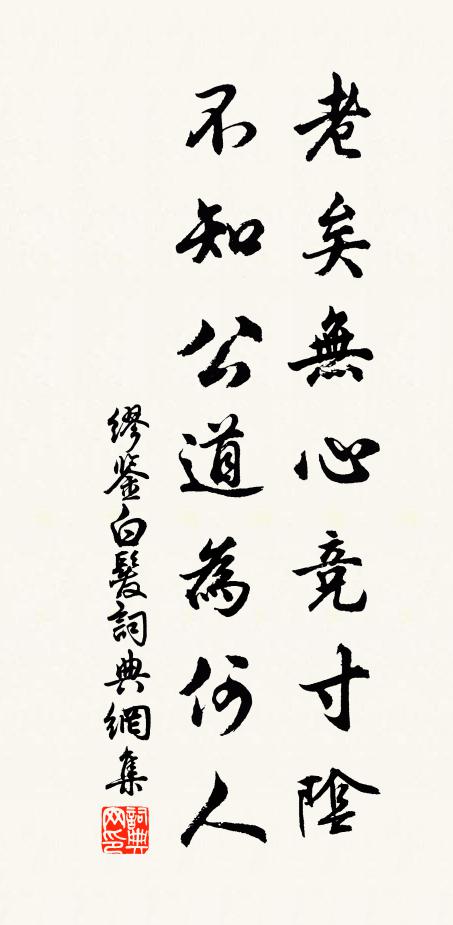 老矣無心竞寸陰
不知公道為何人
繆鉴白髮詞典網集
詞典网印